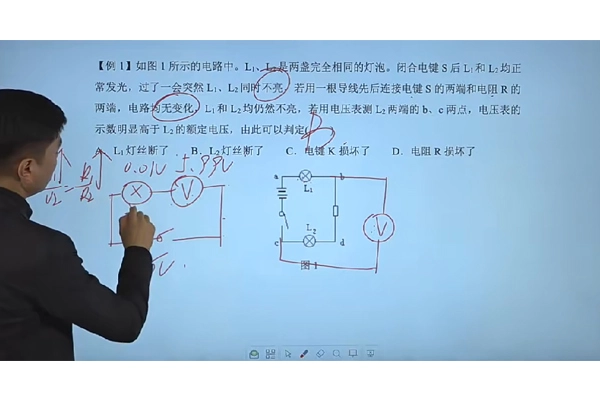 【例1】如图1所示的电路中。L₁、L₂是两盏完全相同的灯泡。闭合电键S后L₁和L₂均正
常发光，过了一会突然L₁、L₂同时不亮，若用一根导线先后连接电键S的两端和电阻R的
两端，电路均无变化，L₁和L₂均仍然不亮，若用电压表测L₂两端的b、c两点，电压表的
示数明显高于L₂的额定电压，由此可以判定(B
L₁灯丝断了 B．L₂灯丝断了 C．电键K损坏了 D．电阻R损坏了
0.01V 5.99V
U₂ = R₁ R₂
X V
6V
a L₁ b
V
c L₂ d
图1